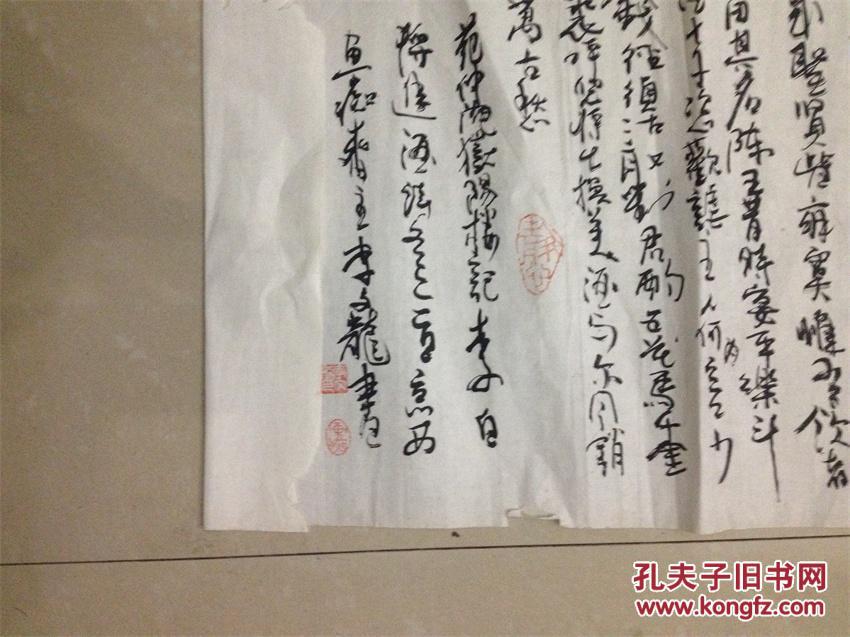 来聖賢皆寂寞惟有飲者
留其名陈王昔时宴平樂斗
酒十千恣歡謔主人何為言少
錢徑須沽取對君酌五花馬千金
裘呼兒将出換美酒与尔同銷
萬古愁
范仲淹嶽陽樓記李白
將進酒詩文之
癡斋主李文龍書
孔夫子旧书网
www.kongfz.com